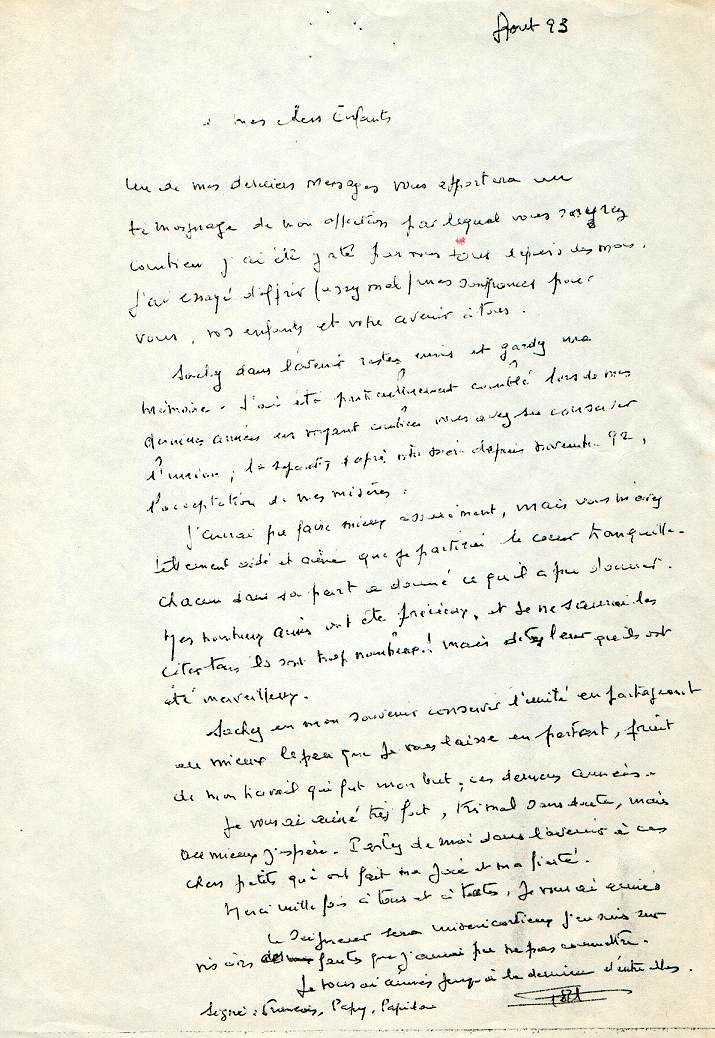 Août 93
à mes chers Enfants
Un de mes derniers messages vous apportera un
témoignage de mon affection par lequel vous saurez
combien j'ai été gâté par vous tous depuis des mois.
J'ai essayé d'offrir (assez mal) mes souffrances pour
vous, vos enfants et votre avenir à tous.
Sachez dans l'avenir rester unis et gardez ma
mémoire. J'ai été particulièrement comblé lors de mes
dernières années en voyant combien vous avez su conserver
l'union, la depuis novembre 92,
l'acceptation de mes misères.
J'aurai pu faire mieux assurément, mais vous m'avez
tellement aidé et aimé que je partirai le coeur tranquille.
Chacun dans sa part a donné ce qu'il a pu donner.
Mes nombreux amis ont été précieux, et je ne saurai les
citer tous ils sont trop nombreux! mais dites leur qu'ils ont
été merveilleux.
Sachez en mon souvenir conserver l'unité en partageant
au mieux le peu que je vous laisse en partant, fruit
de mon travail qui fut mon but, ces dernières années.
Je vous ai aimé très fort, très mal sans doute, mais
au mieux j'espère. Parlez de moi dans l'avenir à ces
chers petits qui ont fait ma joie et ma fierté.
Merci mille fois à tous et à toutes, je vous ai aimés
Le Seigneur sera miséricordieux j'en suis sur
vis à vis des fautes que j'aurai pu ne pas connaître.
Je vous ai aimés jusqu'à la dernière d'entre elles.
Signé : François, Papy, Papitou